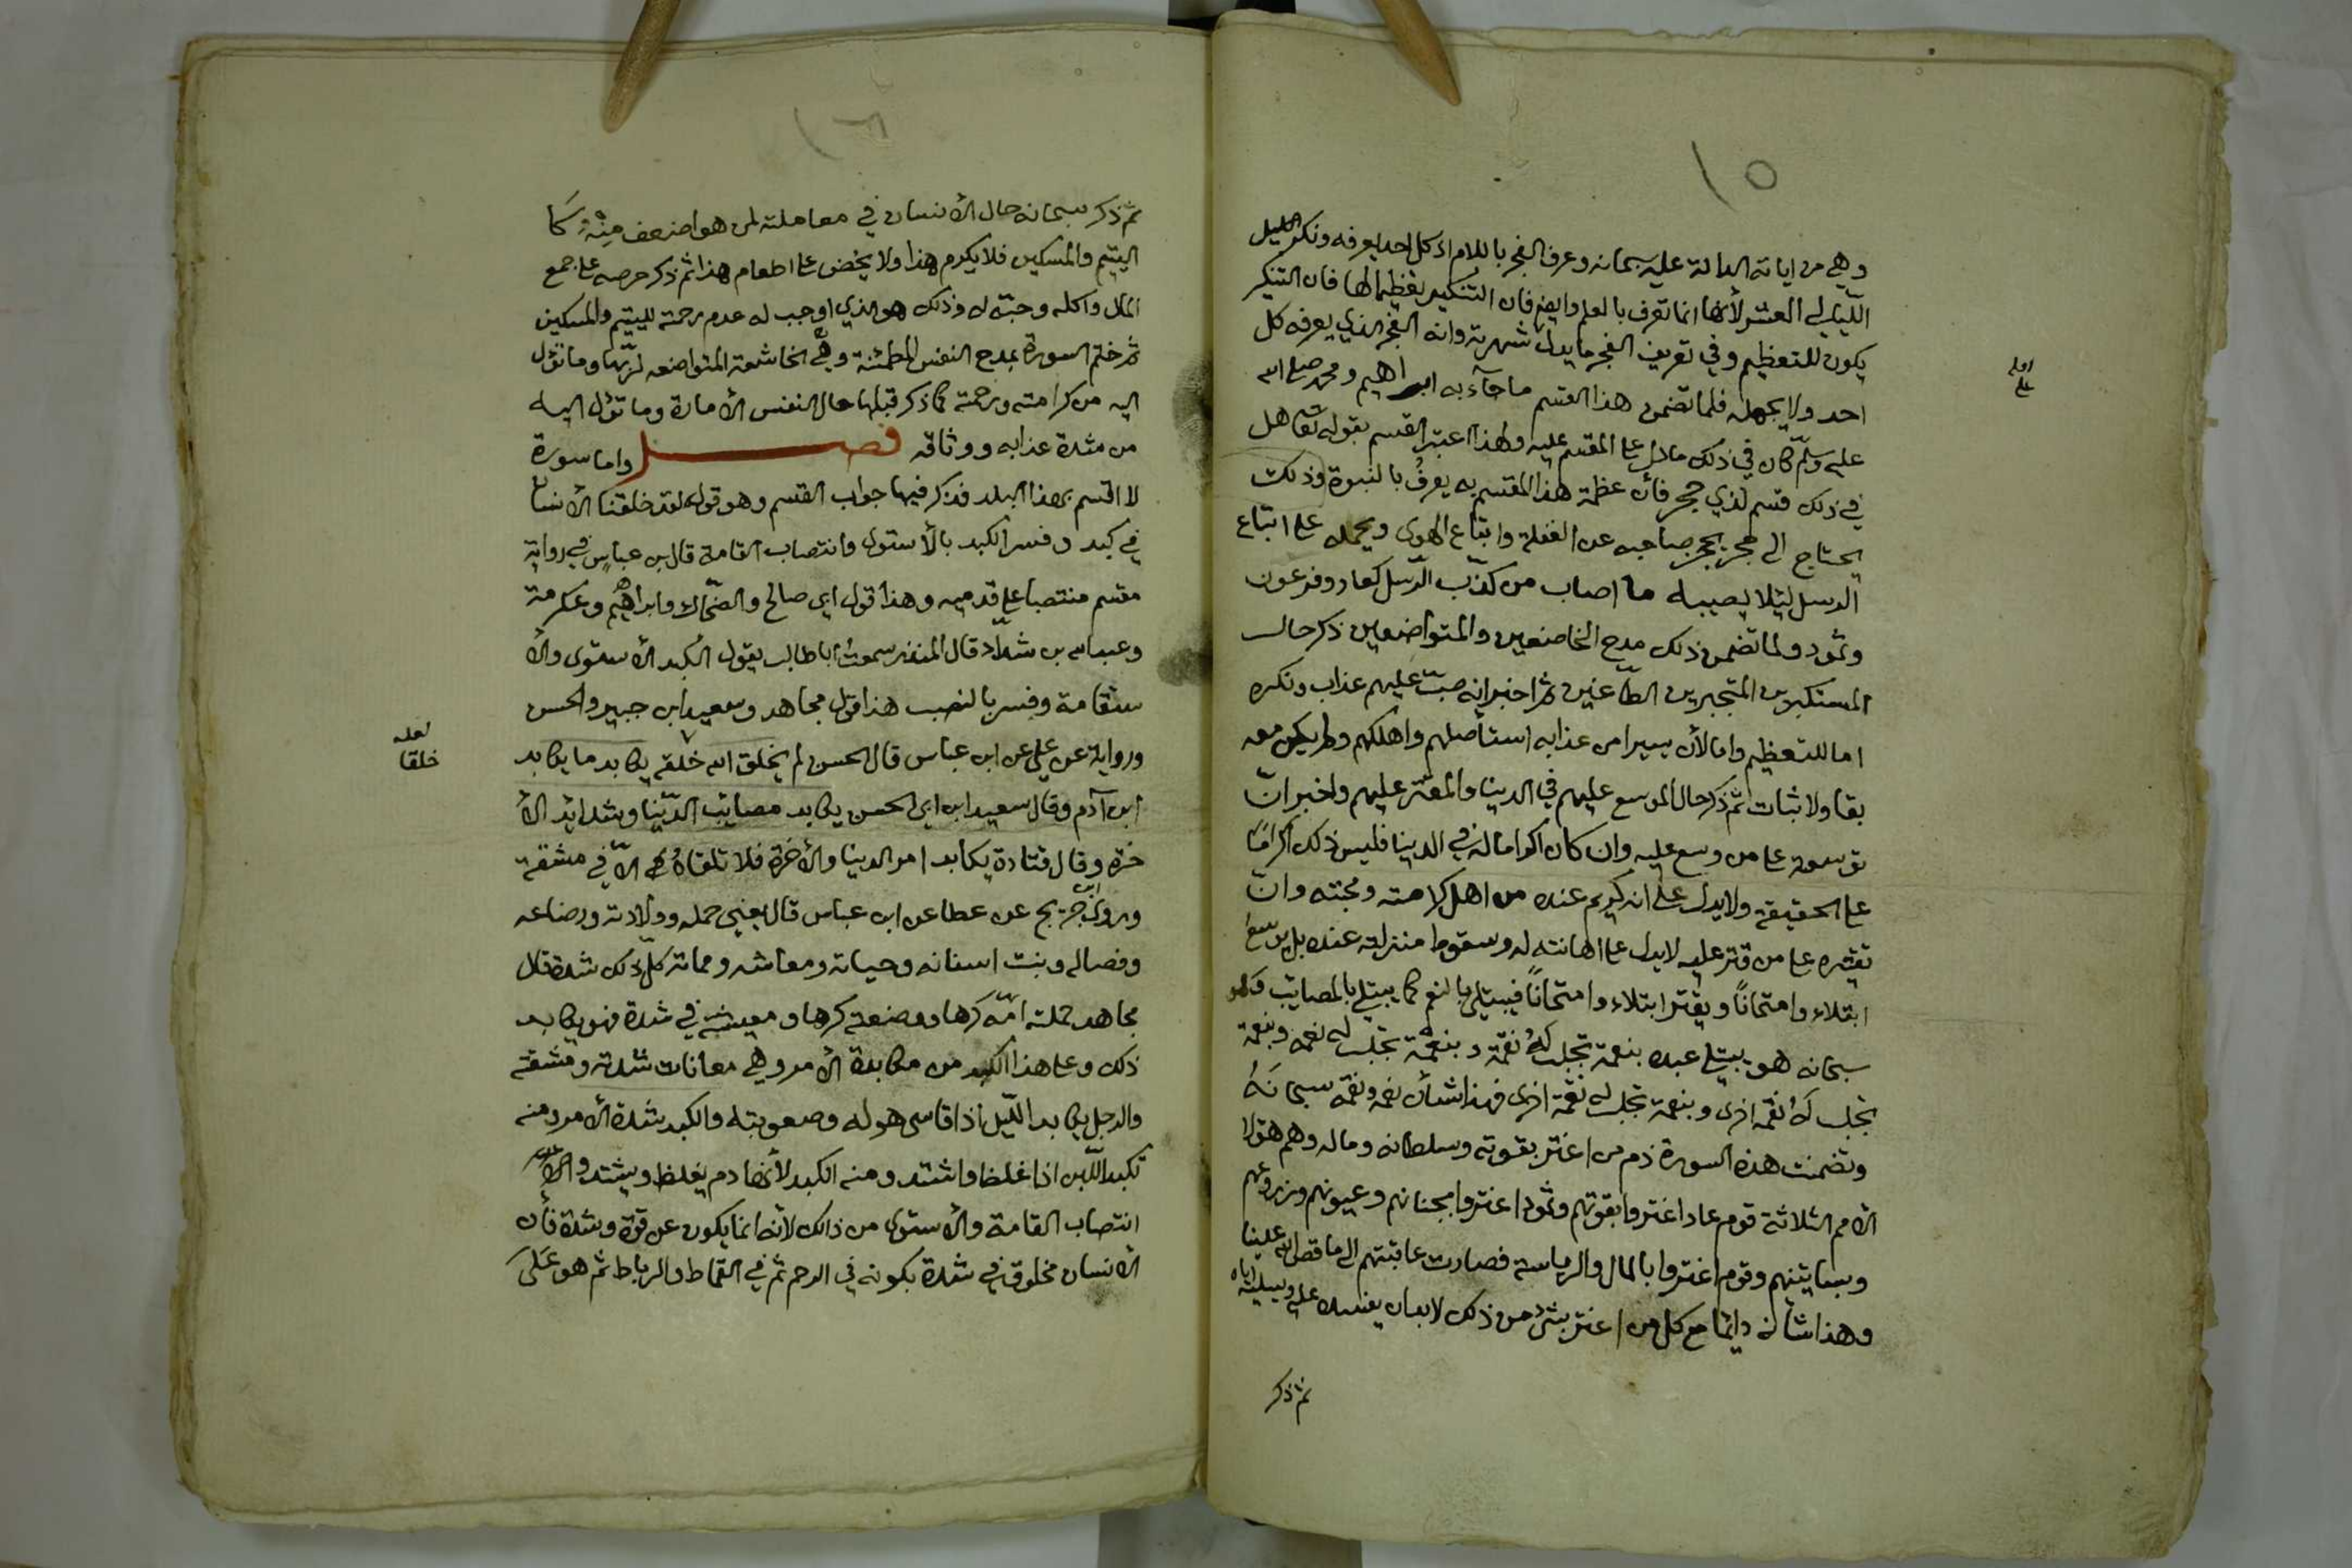 ١٥
وهي من اياته الدالة عليه سبحانه وعرف الفجر باللام اذ كل احد يعرفه ونكر الليل
الليالي العشر لأنها انما تعرف بالعلم وايضا فان التنكير تعظيما لها فان التنكير
يكون للتعظيم وفي تعريف الفجر ما يدل شهرته وانه الفجر الذي يعرفه كل
احد ولا يجهله فلما تضمن هذا القسم ما جآء به ابراهيم ومحمد صلى الله
عليه وسلم كان في ذلك ما دل على المقسم عليه ولهذا اعتبر القسم بقوله تعا هل
في ذلك قسم لذي حجر فأن عظمة هذا المقسم به يعرف بالنبوة وذلك
يحتاج الى حجر يحجر صاحبه عن الغفلة واتباع الهوى ويحمله على اتباع
الرسل ليلا يصيبه ما اصاب من كذب الرسل كعاد وفرعون
وثمود ولما تضمن ذلك مدح الخاضعين والمتواضعين ذكر حال
المستكبرين المتجبرين الطاغين ثم اخبر انه صب عليهم عذاب ونكره
اما للتعظيم واما لأن يسيرا من عذابه استأصلهم واهلكهم ولم يكن معه
بقا ولا ثبات ثم ذكر حال الموسع عليهم في الدنيا والمقتر عليهم واخبر ان
توسعة على من وسع عليه وان كان اكراما له في الدنيا فليس ذلك اكراما
على الحقيقة ولا يدل على انه كريم عنده من اهل كرامته ومحبته وان
تقتيره على من قتر عليه لا يدل على اهانته له وسقوط منزلته عنده بل يوسع
ابتلاء وامتحاناً ويقتر ابتلاء وامتحاناً فيبتلى بالنعم كما يبتلي بالمصايب وهو
سبحانه هو يبتلي عبده بنعمة تجلب له نقمة وبنعمة تجلب له نعمة وبنقمة
تجلب له نقمة اخرى وبنقمة تجلب له نعمة اخرى فهذا شأن نعمه ونقمه سبحانه
وتضمنت هذه السورة ذم من اغتر بقوته وسلطانه وماله وهم هؤلا
الأمم الثلاثة قوم عاد اغتروا بقوتهم وثمود اغتروا بجنانهم وعيونهم وزروعهم
وبساتينهم وقوم اغتروا بالمال والرياسة فصارت عاقبتهم الى ما قص الله علينا
وهذا شأنه دائما مع كل من اغتر بشئ من ذلك لا بد ان يفسده عليه ويسلبه اياه
ثم ذكر
١٦
ثم ذكر سبحانه حال الأنسان في معاملته لمن هو اضعف منه كا
اليتيم والمسكين فلا يكرم هذا ولا يحض على اطعام هذا ثم ذكر حرصه على جمع
المال واكله وحبه له وذلك هو الذي اوجب له عدم رحمته لليتيم والمسكين
ثم ختم السورة بمدح النفس المطمئنة وهي الخاشعة المتواضعه لربها وما تؤل
اليه من كرامته ورحمته كما ذكر قبلها حال النفس الأمارة وما تؤل اليه
من شدة عذابه ووثاقه فصل واما سورة
لا اقسم بهذا البلد فذكر فيها جواب القسم وهو قوله لقد خلقنا الأنسان
في كبد وفسر الكبد بالأستوى وانتصاب القامة قال بن عباس في رواية
مقسم منتصبا على قدميه وهذا قول ابي صالح والضحاك وابراهيم وعكرمة
وعبد الله بن شداد قال المنذر سمعت ابا طالب يقول الكبد الأستوى والأ
ستقامة وفسر بالنصب هذا قول مجاهد وسعيد ابن جبير والحسن
ورواية عن علي عن ابن عباس قال الحسن لم يخلق الله خلقه يكابد ما يكابد
لعله
خلقا
ابن آدم وقال سعيد ابن ابي الحسن يكابد مصايب الدنيا وشدايد الأ
خرة وقال قتادة يكابد امر الدنيا والأخرة فلا تلقاه الا في مشقة
وروى ابن جريج عن عطا عن ابن عباس قال يعني حمله وولادته ورضاعه
وفصاله ونبت اسنانه وحياته ومعاشه ومماته كل ذلك شدة قال
مجاهد حملته امه كرها ووضعته كرها ومعيشته في شدة فهو يكابد
ذلك وعلى هذا الكبد من مكابدة الأمر وهي معانات شدته ومشقته
والرجل يكابد الليل اذا قاسى هوله وصعوبته والكبد شدة الأمر ومنه
تكبد اللبن اذا غلظ واشتد ومنه الكبد لأنها دم يغلظ ويشتد و
انتصاب القامة والأستوى من ذالك لأنه انما يكون عن قوة وشدة فأن
الأنسان مخلوق في شدة بكونه في الرحم ثم في القماط والرباط ثم هو على